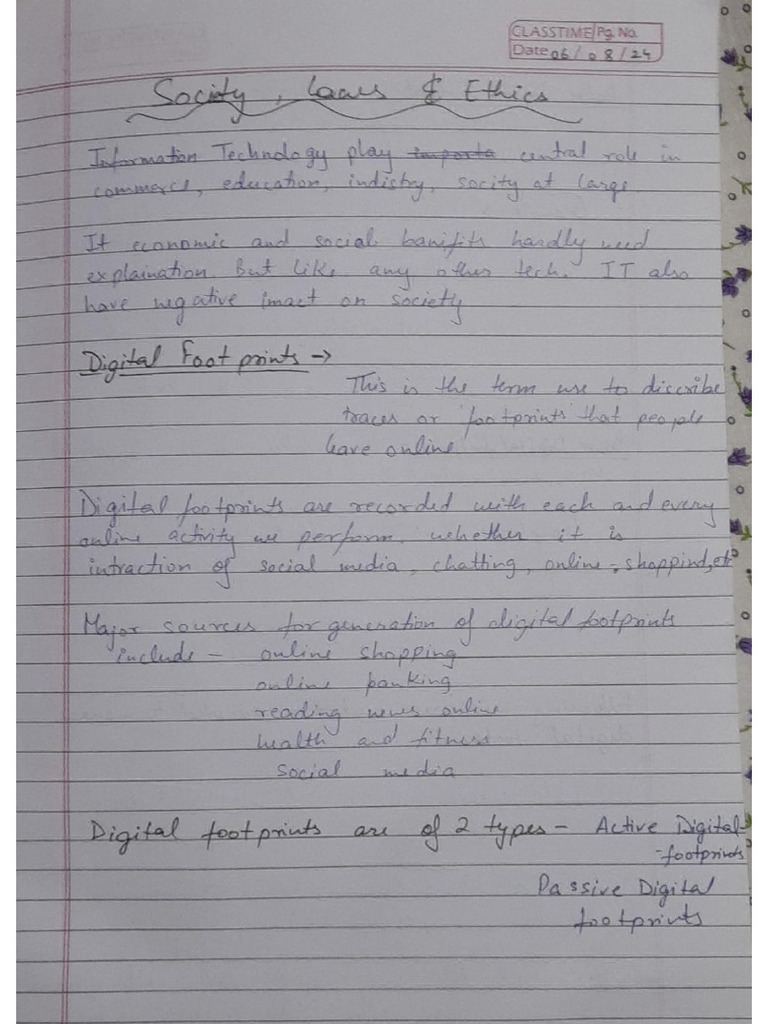 CLASSTIME Pg. No.
Date 06 / 08 / 24
Socity, Laws & Ethics
Information Technology play importa central role in
commerce, education, indistry, socity at large
It economic and social banifits hardly need
explaination. But like any other tech. IT also
have negative imact on society
Digital Foot prints →
This is the term use to discribe
traces or 'footprints' that people
leave online
Digital footprints are recorded with each and every
online activity we perform, whether it is
intraction of social media, chatting, online shoppind, etc
Major sources for generation of digital footprints
include - online shopping
online banking
reading news online
health and fitness
social media
Digital footprints are of 2 types - Active Digital-
-footprints
Passive Digital
footprints